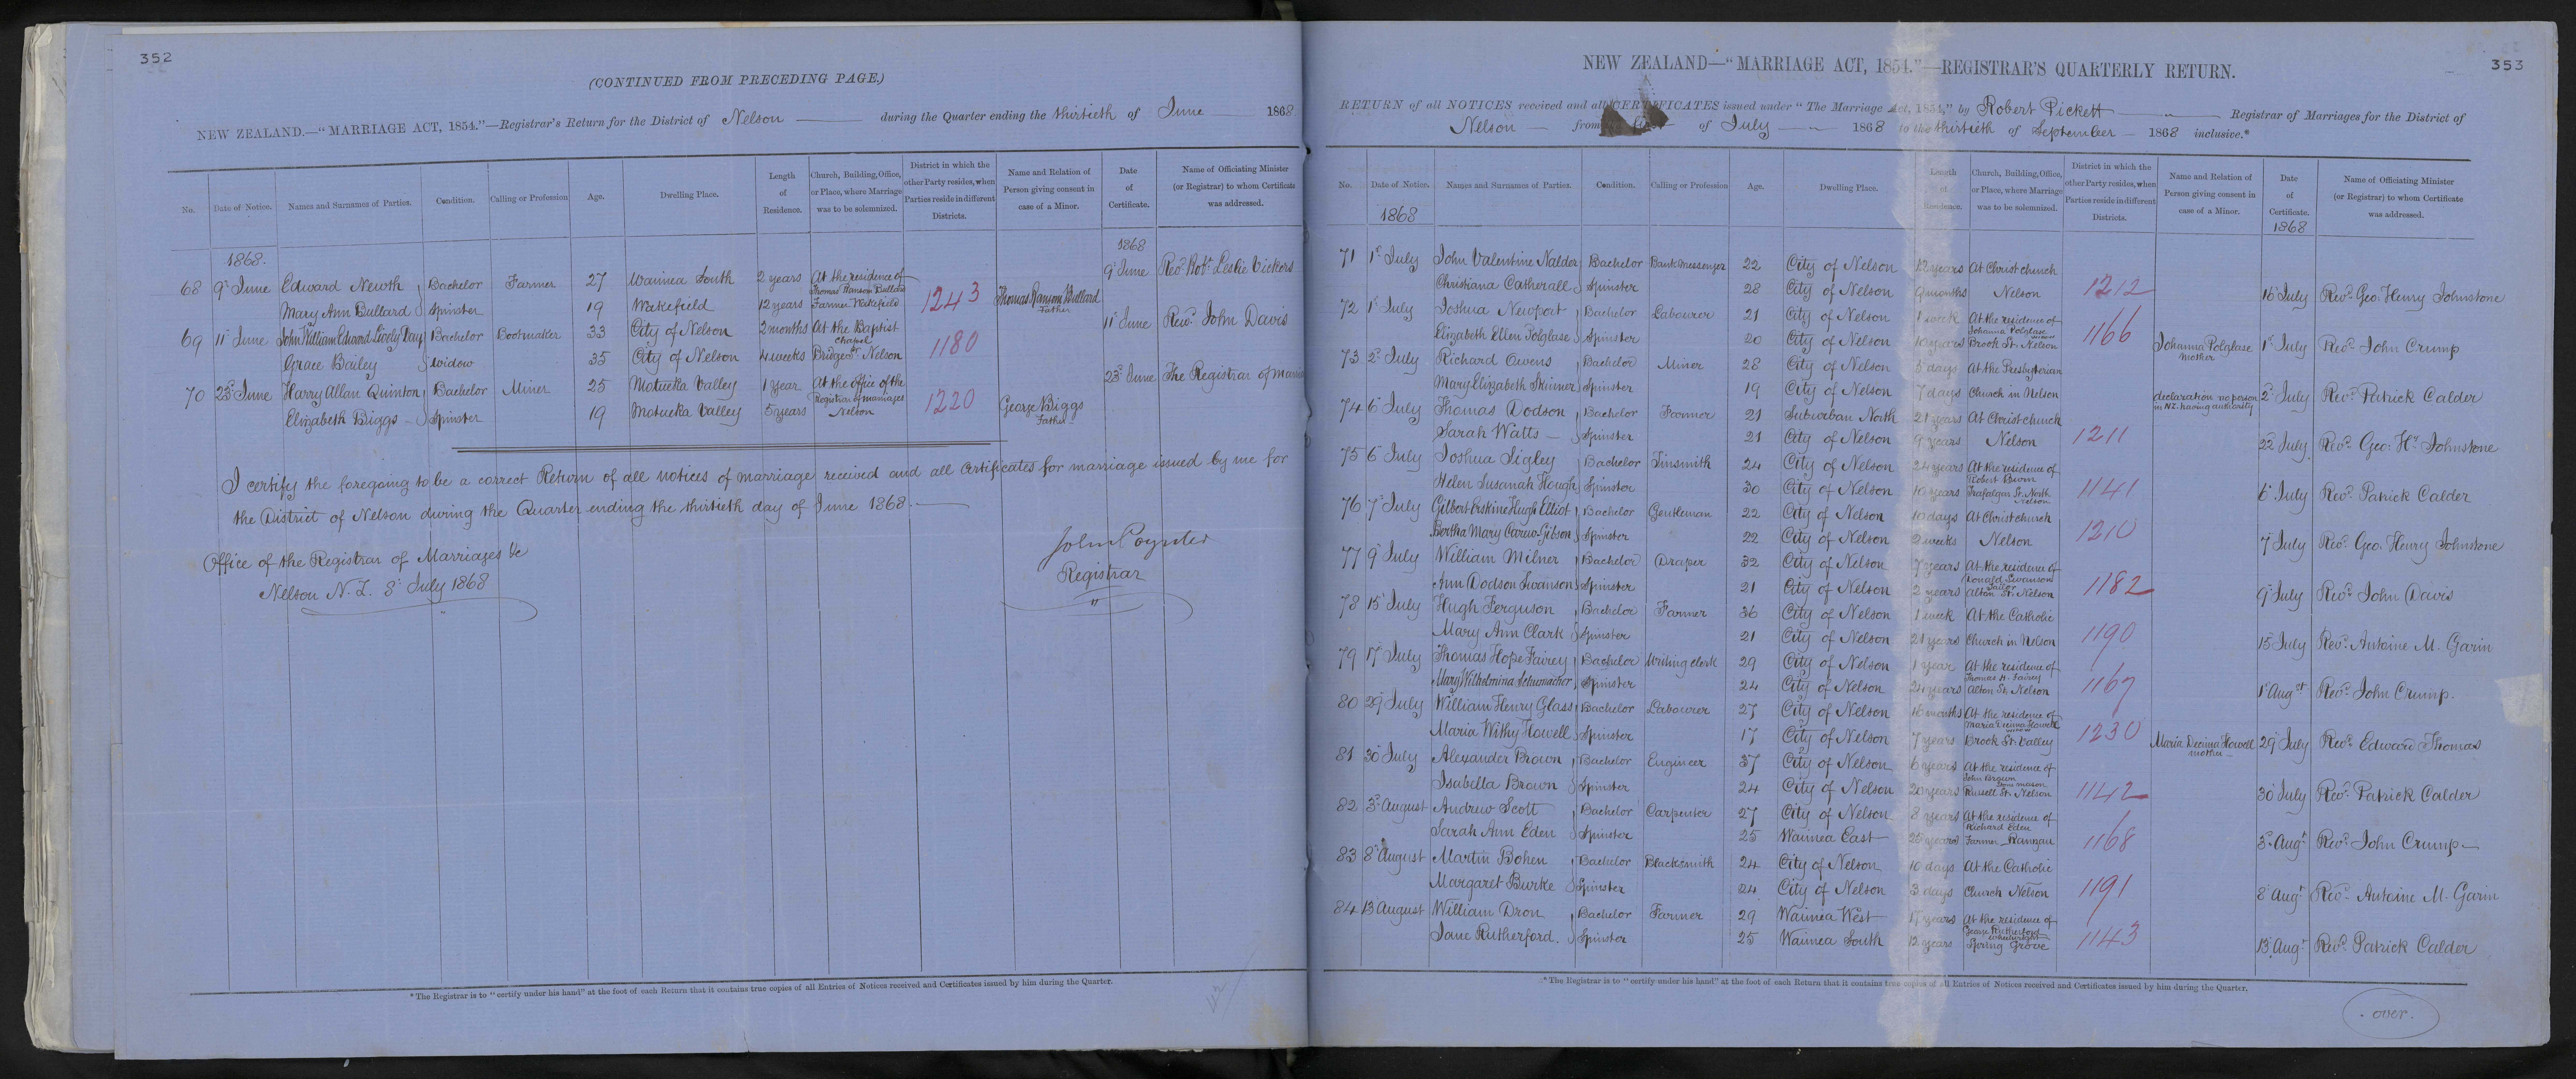 352
(CONTINUED FROM PRECEDING PAGE.)
NEW ZEALAND.—"MARRIAGE ACT, 1854."—Registrar's Return for the District of Nelson during the Quarter ending the thirtieth of June 1868
No. Date of Notice. Names and Surnames of Parties. Condition. Calling or Profession Age. Dwelling Place. Length of Residence. Church, Building, Office, or Place, where Marriage was to be solemnized. District in which the other Party resides, when Parties reside in different Districts. Name and Relation of Person giving consent in case of a Minor. Date of Certificate. Name of Officiating Minister (or Registrar) to whom Certificate was addressed.
1868. 1868
68 9th June Edward Newth Bachelor Farmer 27 Waimea South 2 years At the residence of Thomas Ransom Bullard 9 June Revd. Robt. Leslie Vickers
Mary Ann Bullard Spinster 19 Wakefield 12 years Farmer Wakefield 1243 Thomas Ransom Bullard Father
69 11 June John William Edward Lively Day Bachelor Bootmaker 33 City of Nelson 2 months At the Baptist chapel 11 June Revd. John Davis
Grace Bailey Widow 35 City of Nelson 4 weeks Bridge St. Nelson 1180
70 23d June Harry Allan Quinton Bachelor Miner 25 Motueka Valley 1 Year At the office of the Registrar of marriages 23d June The Registrar of
Elizabeth Biggs Spinster 19 Motueka Valley 5 years Nelson 1220 George Biggs Father
I certify the foregoing to be a correct Return of all notices of marriage received and all certificates for marriage issued by me for
the District of Nelson during the Quarter ending the thirtieth day of June 1868.
Office of the Registrar of Marriages &c
Nelson N.Z. 3d July 1868
John Poynter
Registrar
* The Registrar is to "certify under his hand" at the foot of each Return that it contains true copies of all Entries of Notices received and Certificates issued by him during the Quarter.
353
NEW ZEALAND—"MARRIAGE ACT, 1854."—REGISTRAR'S QUARTERLY RETURN.
RETURN of all NOTICES received and all CERTIFICATES issued under "The Marriage Act, 1854," by Robert Pickett Registrar of Marriages for the District of
Nelson from of July 1868 to the thirtieth of September 1868 inclusive.*
No. Date of Notice. Names and Surnames of Parties. Condition. Calling or Profession Age. Dwelling Place. Length of Residence. Church, Building, Office, or Place, where Marriage was to be solemnized. District in which the other Party resides, when Parties reside in different Districts. Name and Relation of Person giving consent in case of a Minor. Date of Certificate. Name of Officiating Minister (or Registrar) to whom Certificate was addressed.
1868 1868
71 1st July John Valentine Nalder Bachelor Bank Messenger 22 City of Nelson 12 years At Christ church
Christiana Catherall Spinster 28 City of Nelson 9 months Nelson 1212 16 July Revd. Geo. Henry Johnstone
72 1st July Joshua Newport Bachelor Labourer 21 City of Nelson 1 week At the residence of Johanna Polglase widow
Elizabeth Ellen Polglase Spinster 20 City of Nelson 10 years Brook St. Nelson 1166 Johanna Polglase mother 1st July Revd. John Crump
73 2d July Richard Owens Bachelor Miner 28 City of Nelson 5 days At the Presbyterian
Mary Elizabeth Skinner Spinster 19 City of Nelson 7 days Church in Nelson declaration no person in N.Z. having authority 2d July Revd. Patrick Calder
74 6 July Thomas Dodson Bachelor Farmer 21 Suburban North 21 years At Christ church
Sarah Watts Spinster 21 City of Nelson 9 years Nelson 1211 22 July Revd. Geo. Hy. Johnstone
75 6 July Joshua Sigley Bachelor Tinsmith 24 City of Nelson 24 years At the residence of Robert
Helen Susanah Hough Spinster 30 City of Nelson 10 years Trafalgar St. North Nelson 1141 6 July Revd. Patrick Calder
76 7 July Gilbert Erskine Hugh Elliot Bachelor Gentleman 22 City of Nelson 10 days At Christ church
Bertha Mary Carew Gibson Spinster 22 City of Nelson 2 weeks Nelson 1210 7 July Revd. Geo. Henry Johnstone
77 9 July William Milner Bachelor Draper 32 City of Nelson 7 years At the residence of Donald Swanson
Ann Dodson Swanson Spinster 21 City of Nelson 2 years Alton St. Nelson 1182 9 July Revd. John Davis
78 15 July Hugh Ferguson Bachelor Farmer 36 City of Nelson 1 week At the Catholic
Mary Ann Clark Spinster 21 City of Nelson 21 years Church in Nelson 1190 15 July Revd. Antoine M. Garin
79 17 July Thomas Hope Fairey Bachelor Writing clerk 29 City of Nelson 1 year At the residence of Thomas H. Fairey
Mary Wilhelmina Schumacher Spinster 24 City of Nelson 24 years Alton St. Nelson 1167 1st Augst Revd. John Crump.
80 29 July William Henry Glass Bachelor Labourer 27 City of Nelson 16 months At the residence of Maria Decima Howell widow
Maria Withy Howell Spinster 17 City of Nelson 7 years Brook St. Valley 1230 Maria Decima Howell mother 29 July Revd. Edward Thomas
81 30 July Alexander Brown Bachelor Engineer 37 City of Nelson 6 years At the residence of John Brown
Isabella Brown Spinster 24 City of Nelson 20 years Russell St. Nelson 1142 30 July Revd. Patrick Calder
82 3d August Andrew Scott Bachelor Carpenter 27 City of Nelson 8 years At the residence of Richard Eden
Sarah Ann Eden Spinster 25 Waimea East 25 years Farmer Ranzau 1168 3d Augt Revd. John Crump
83 8 August Martin Bohen Bachelor Blacksmith 24 City of Nelson 10 days At the Catholic
Margaret Burke Spinster 24 City of Nelson 3 days Church Nelson 1191 8 Augt Revd. Antoine M. Garin
84 13 August William Dron Bachelor Farmer 29 Waimea West 17 years At the residence of George Rutherford wheelwright
Jane Rutherford. Spinster 25 Waimea South 12 years Spring Grove 1143 13 Augt Revd. Patrick Calder
* The Registrar is to "certify under his hand" at the foot of each Return that it contains true copies of all Entries of Notices received and Certificates issued by him during the Quarter.
over.